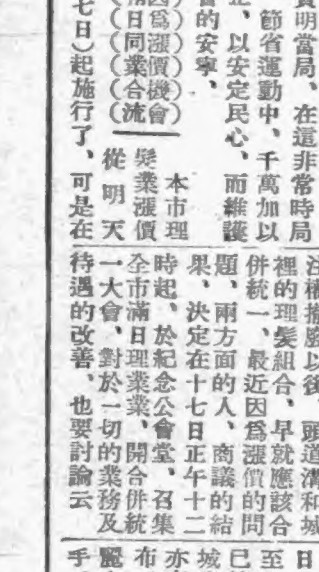 明當局、在這非常時局
節省運動中、千萬加以
、以安定民心、而維護
的安寧、
因爲漲價機會)
日同業合流)
本市理
髮業漲價
從明天
七日)起施行了、可是在
權撤廢以後、頭道溝和城
裡的理髮組合、早就應該合
併統一、最近因爲漲價的問
題、兩方面的人、商議的結
果、決定在十七日正午十二
時起、於紀念公會堂、召集
全市滿日理髮業、開合併統
一大會、對於一切的業務及
待遇的改善、也要討論云
日
至
已
城
亦
布
麗
手